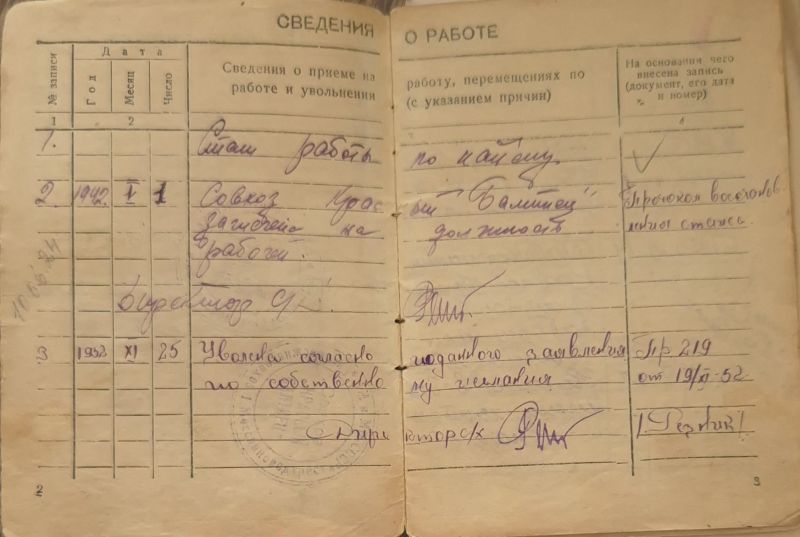 СВЕДЕНИЯ О РАБОТЕ
№ записи
Дата
Год
Месяц
Число
Сведения о приеме на работу, перемещениях по
работе и увольнения (с указанием причин)
На основании чего
внесена запись
(документ, его дата
и номер)
1 2 4
1. Стаж работы по найму
2. 1942 I 1 Совхоз Крас ный "Балтиец" Протокол восстанов
зачислена на должность ления стажа
рабочей.
10 06 24
Директор с/х
3 1952 XI 25 Уволена согласно поданного заявления Пр 219
по собственно му желания от 19/XI-52
Директор с/х /Резник/
2 3